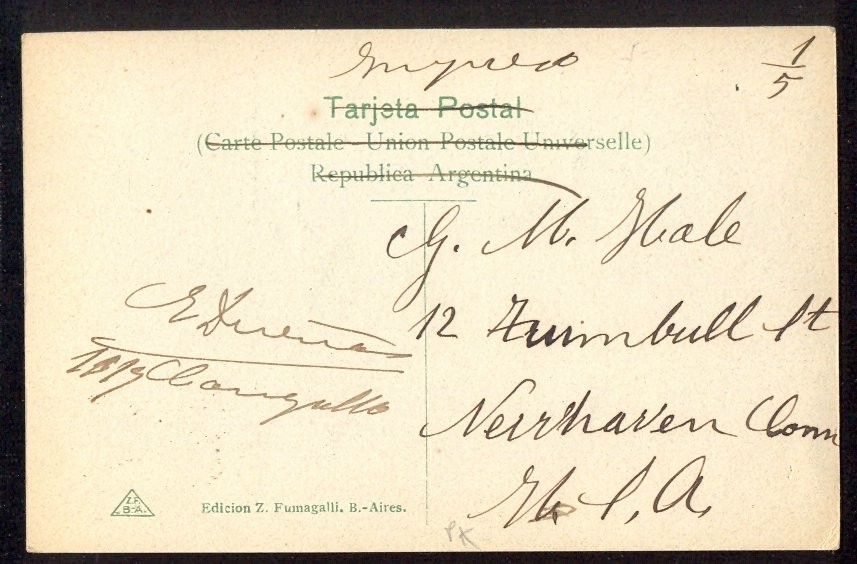 Impreso
1/5
Tarjeta Postal
(Carte Postale - Union Postale Universelle)
Republica Argentina
G. M. Hale
12 Trumbull St
E Dueñas
Cangallo
Newhaven Conn
U.S.A.
Z.F.
B-A.
Edicion Z. Fumagalli. B.-Aires.